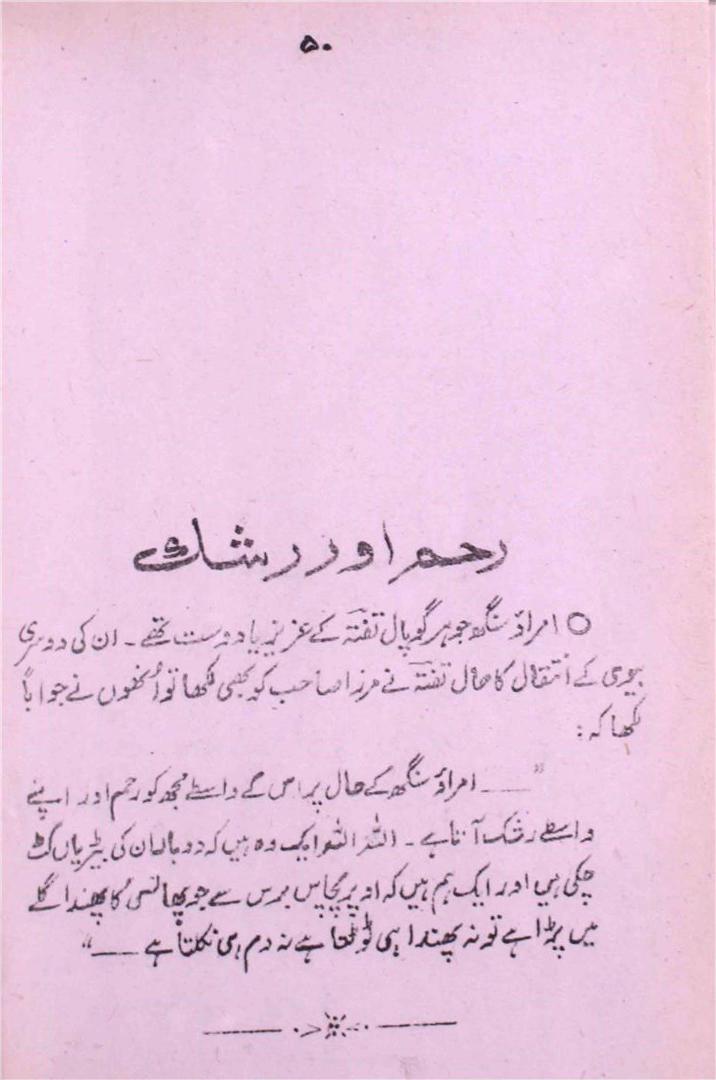 ۵۰
رحم اور رشک
○ امراؤ سنگھ جو ہر گوپال تفتہؔ کے عزیز یا دوست تھے۔ ان کی دوسری
بیوی کے انتقال کا حال تفتہؔ نے مرزا صاحب کو بھی لکھا تو اُنھوں نے جواباً
لکھا کہ:
"ــــ امراؤ سنگھ کے حال پر اس کے واسطے مجھ کو رحم اور اپنے
واسطے رشک آتا ہے۔ اللہ اللہ ایک وہ ہیں کہ دوبار ان کی بیڑیاں کٹ
چکی ہیں اور ایک ہم ہیں کہ اوپر پچاس برس سے جو پھانسی کا پھندا گلے
میں پڑا ہے تو نہ پھندا ہی ٹوٹتا ہے نہ دم ہی نکلتا ہے ــــ"